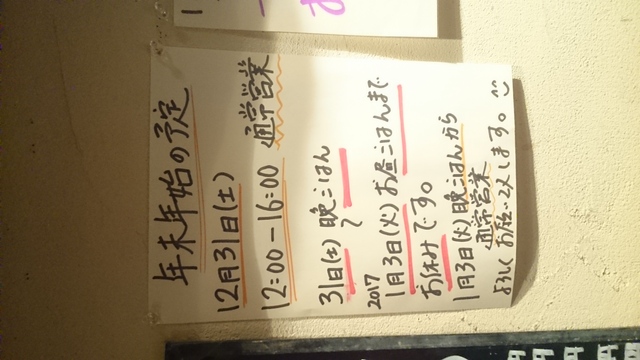 年末年始の予定
12月31日(土)
12:00-16:00 通常営業
31日(土) 晩ごはん
〜
2017
1月3日(火) お昼ごはんまで
お休みです。
1月3日(火) 晩ごはんから
通常営業
よろしくお願いします。